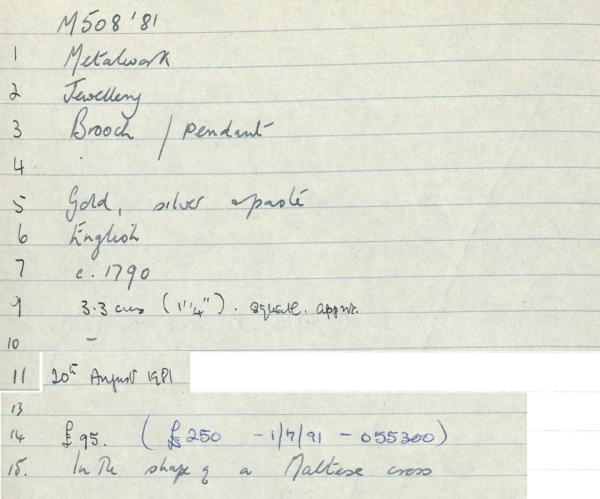 M508 '81
1 Metalwork
2 Jewellery
3 Brooch / pendant
4
5 Gold, silver & paste
6 English
7 c. 1790
9 3.3 cms (1 1/4"). square. approx.
10 –
11 20th August 1981
13
14 £95. (£250 - 1/7/91 - 055300)
15. In the shape of a Maltese cross